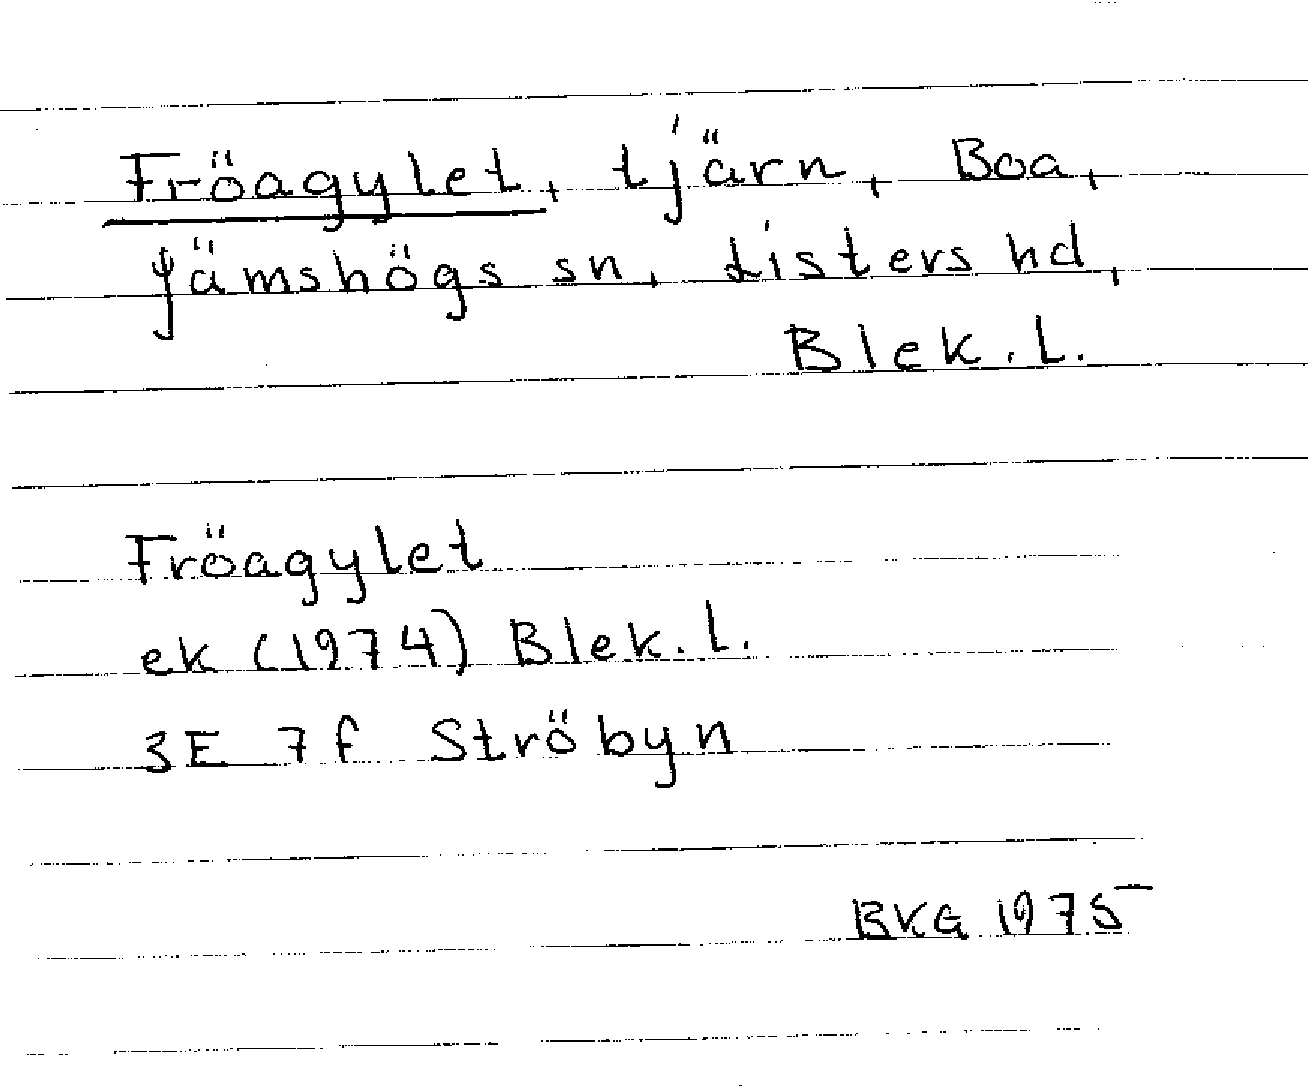 Fröagylet, tjärn, Boa,
Jämshögs sn, Listers hd,
Blek. l.
Fröagylet
ek (1974) Blek. l.
3E 7f Ströbyn
BKG 1975